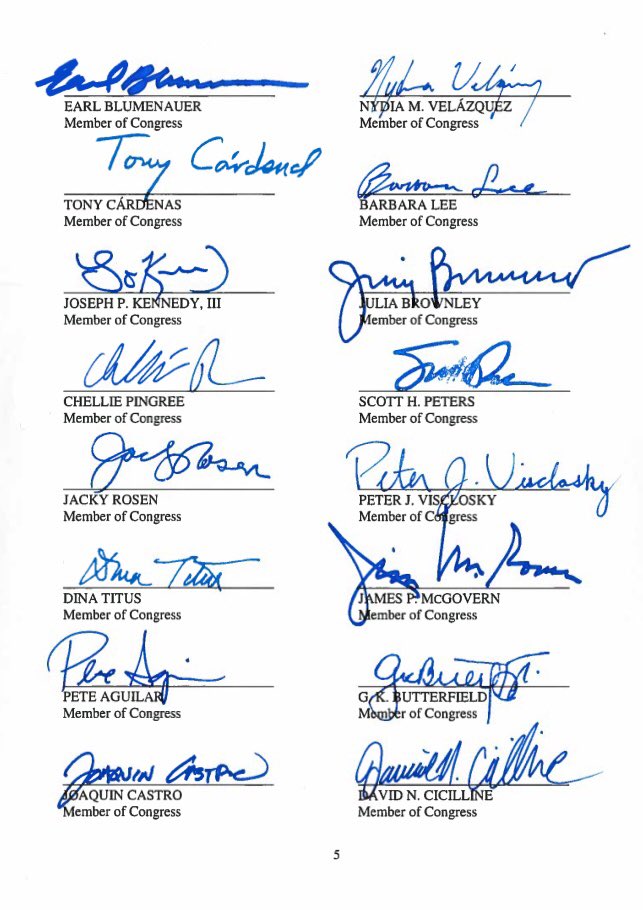 Earl Blumenauer
EARL BLUMENAUER
Member of Congress
Nydia Velázquez
NYDIA M. VELÁZQUEZ
Member of Congress
Tony Cárdenas
TONY CÁRDENAS
Member of Congress
Barbara Lee
BARBARA LEE
Member of Congress
JOSEPH P. KENNEDY, III
Member of Congress
JULIA BROWNLEY
Member of Congress
CHELLIE PINGREE
Member of Congress
SCOTT H. PETERS
Member of Congress
Jacky Rosen
JACKY ROSEN
Member of Congress
Peter J. Visclosky
PETER J. VISCLOSKY
Member of Congress
Dina Titus
DINA TITUS
Member of Congress
JAMES P. McGOVERN
Member of Congress
Pete
PETE AGUILAR
Member of Congress
G. K. BUTTERFIELD
Member of Congress
JOAQUIN CASTRO
JOAQUIN CASTRO
Member of Congress
David N. Cicilline
DAVID N. CICILLINE
Member of Congress
5